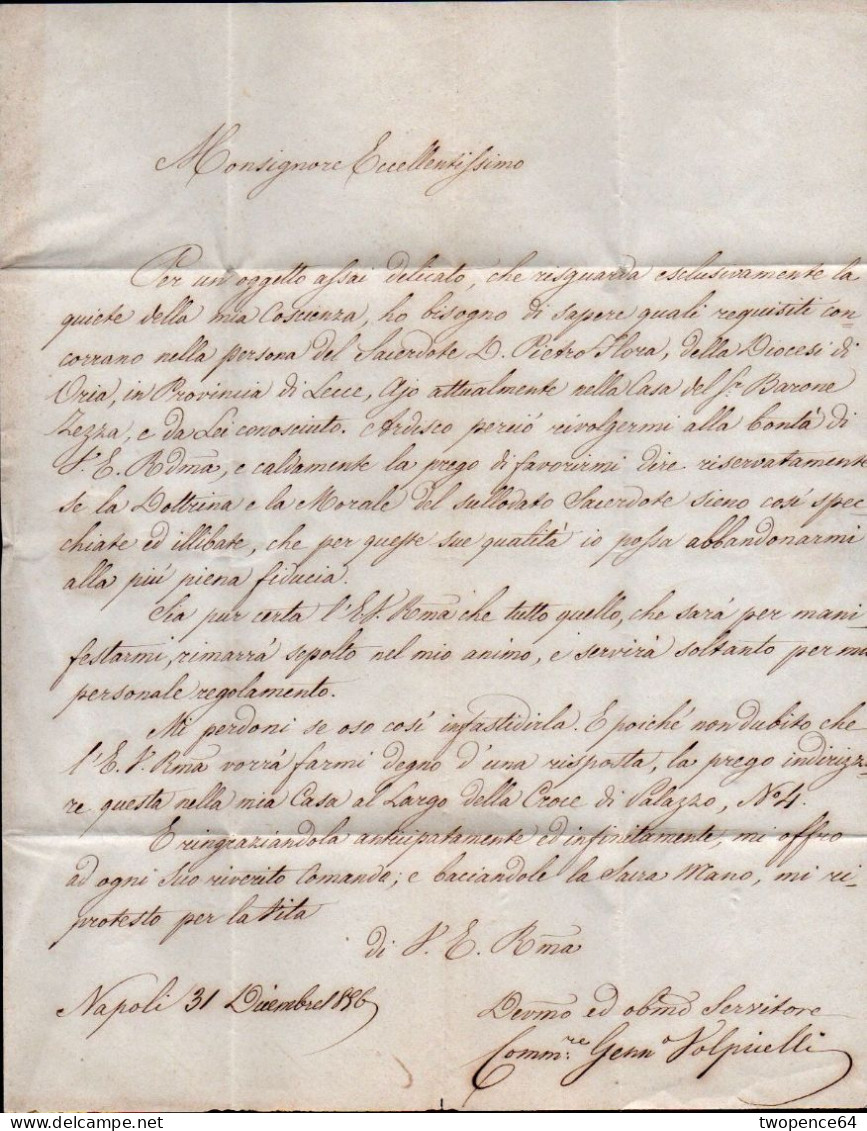 Monsignore Eccellentissimo
Per un' oggetto assai delicato, che risguarda esclusivamente la
quiete della mia Coscienza, ho bisogno di sapere quali requisiti con=
corrano nella persona del Sacerdote D. Pietro Flora, della Diocesi di
Oria, in Provincia di Lecce, Ajo attualmente nella Casa del Sr. Barone
Zezza, e da Lei conosciuto. Ardisco perciò rivolgermi alla bontà di
V. E. Rdma, e caldamente la prego di favorirmi dire riservatamente
se la Dottrina e la Morale del sullodato Sacerdote sieno così spec=
chiate ed illibate, che per queste sue qualità io possa abbandonarmi
alla più piena fiducia.
Sia pur certa l'E.V. Rma che tutto quello, che sarà per mani
festarmi, rimarrà sepolto nel mio animo, e servirà soltanto per mi
personale regolamento.
Mi perdoni se oso così infastidirla. E poiché non dubito che
l'E. V. Rma vorrà farmi degno d'una risposta, la prego indirizz
re questa nella mia Casa al Largo della Croce di Palazzo, No. 4.
E ringraziandola anticipatamente ed infinitamente, mi offro
ad ogni suo riverito Comando; e baciandole la Sacra Mano, mi ri=
protesto per la Vita
di V. E. Rma
Napoli 31 Dicembre 1856
Devmo ed obmo Servitore
Commre. Genno Volpicelli
twopence64